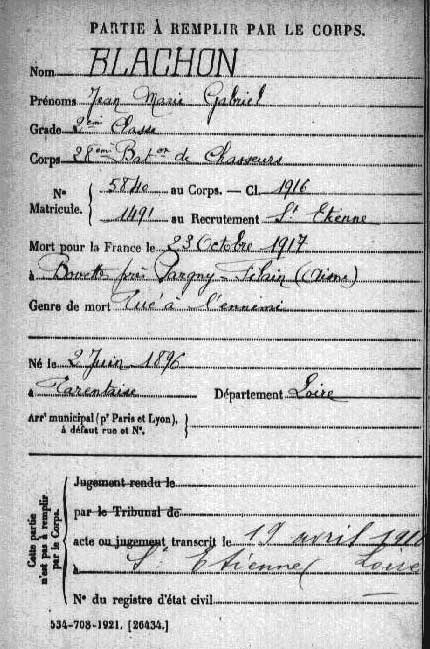 PARTIE À REMPLIR PAR LE CORPS.
Nom BLACHON
Prénoms Jean Marie Gabriel
Grade 2eme Classe
Corps 28eme Baton de Chasseurs
Nº Matricule. { 5840 au Corps. — Cl. 1916
1491 au Recrutement St Etienne
Mort pour la France le 23 Octobre 1917
à près Pargny-Filain (Aisne)
Genre de mort Tué à l'ennemi
Né le 2 Juin 1896
à Tarentaise Département Loire
Arrt municipal (pr Paris et Lyon), }
à défaut rue et Nº.
Cette partie n'est pas à remplir par le Corps.
Jugement rendu le
par le Tribunal de
acte ou jugement transcrit le 19 avril
à St Etienne (Loire
Nº du registre d'état civil
534-708-1921. [26434.]